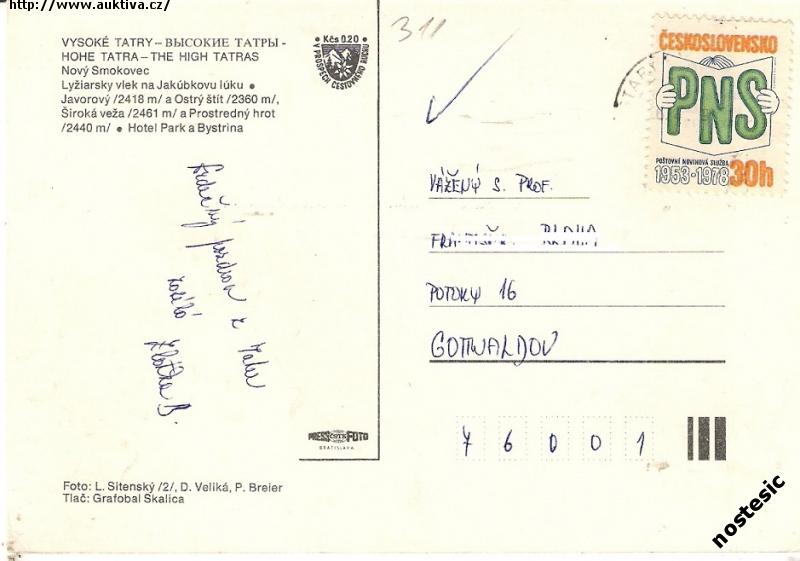 http://www.auktiva.cz/
VYSOKÉ TATRY – ВЫСОКИЕ ТАТРЫ -
HOHE TATRA – THE HIGH TATRAS
Nový Smokovec
Lyžiarsky vlek na Jakúbkovu lúku ●
Javorový /2418 m/ a Ostrý štít /2360 m/,
Široká veža /2461 m/ a Prostredný hrot
/2440 m/ ● Hotel Park a Bystrina
Kčs 0.20
V PROSPECH CESTOVNÉHO RUCHU
311
ČESKOSLOVENSKO
PNS
POŠTOVNÍ NOVINOVÁ SLUŽBA
1953-1978 30h
Srdečný
pozdrav z Tater
zasílá
Zlatka B.
VÁŽENÝ S. PROF.
FRANTIŠEK
POTOKY 16
GOTTWALDOV
76001
PRESSFOTO
BRATISLAVA
Foto: L. Sitenský /2/, D. Veliká, P. Breier
Tlač: Grafobal Skalica
nostesic